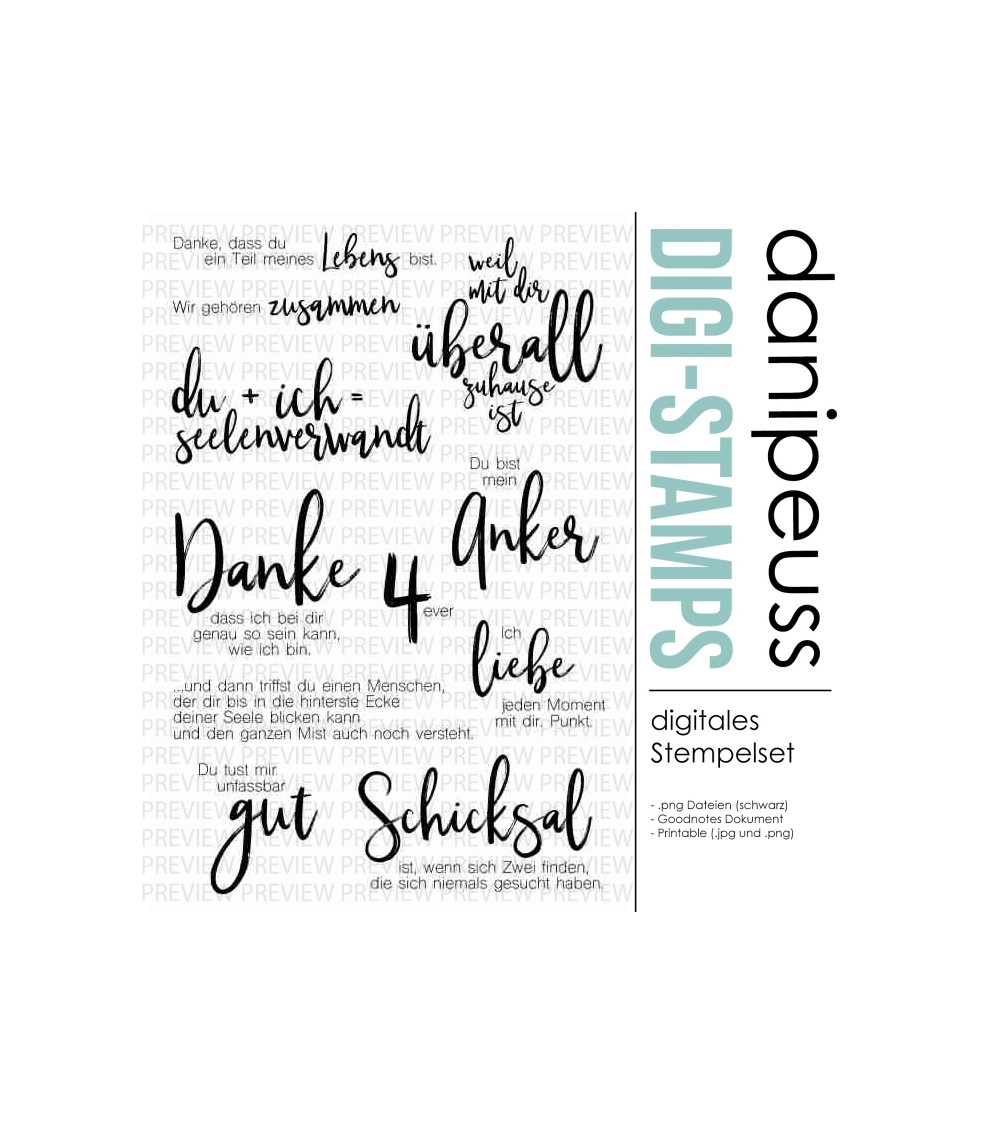 Danke, dass du
ein Teil meines Lebens bist.
Wir gehören zusammen
weil
mit dir
überall
zuhause
ist
du + ich =
seelenverwandt
Du bist
mein
Anker
Danke
dass ich bei dir
genau so sein kann,
wie ich bin.
4
ever
Ich
liebe
jeden Moment
mit dir. Punkt.
...und dann triffst du einen Menschen,
der dir bis in die hinterste Ecke
deiner Seele blicken kann
und den ganzen Mist auch noch versteht.
Du tust mir
unfassbar
gut
Schicksal
ist, wenn sich Zwei finden,
die sich niemals gesucht haben.
PREVIEW PREVIEW PREVIEW PREVIEW PREVIEW
danipeuss
DIGI-STAMPS
digitales
Stempelset
- .png Dateien (schwarz)
- Goodnotes Dokument
- Printable (.jpg und .png)